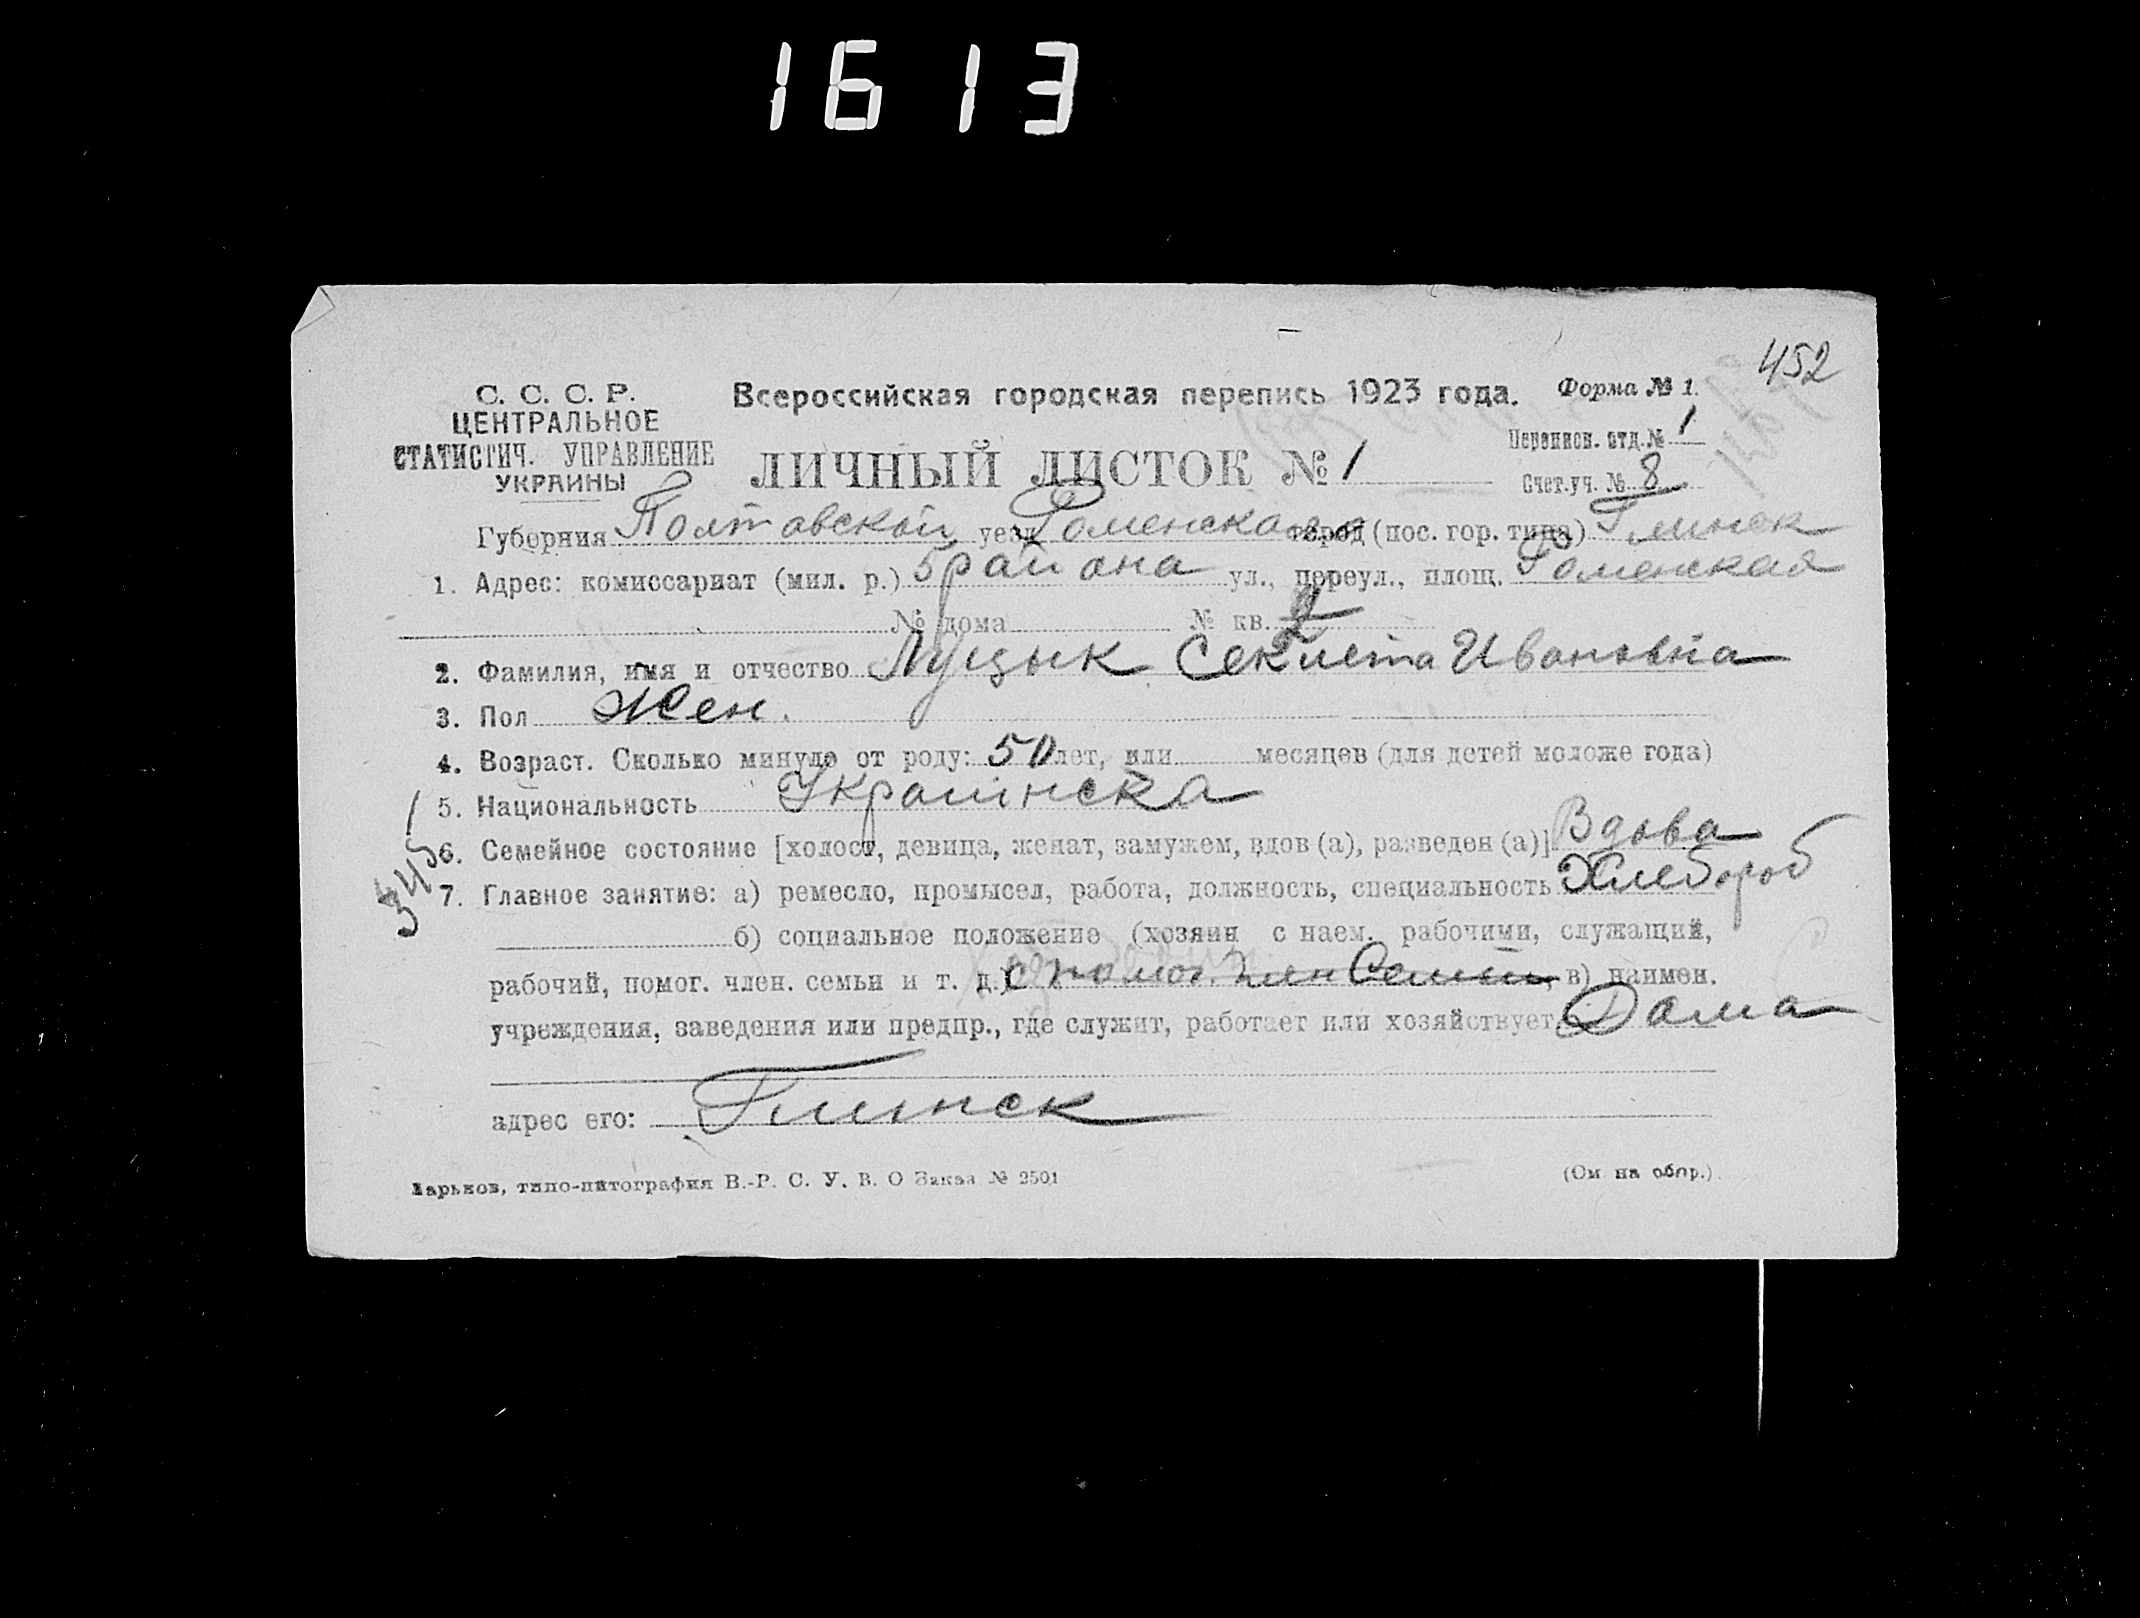 1613
452
С. С. С. Р.
ЦЕНТРАЛЬНОЕ
СТАТИСТИЧ. УПРАВЛЕНИЕ
УКРАИНЫ
Всероссийская городская перепись 1923 года.
Форма № 1.
ЛИЧНЫЙ ЛИСТОК № 1
Переписн. отд. № 1
Счет. уч. № 8
Губерния Полтавской уезд Роменского город (пос. гор. типа) Глинск
1. Адрес: комиссариат (мил. р.) 5 района ул., переул., площ. Роменская
№ дома № кв.
2. Фамилия, имя и отчество Луцык Секлета Ивановна
3. Пол Жен.
4. Возраст. Сколько минуло от роду: 50 лет, или месяцев (для детей моложе года)
5. Национальность Украинска
6. Семейное состояние [холост, девица, женат, замужем, вдов (а), разведен (а)] Вдова
7. Главное занятие: а) ремесло, промысел, работа, должность, специальность Хлебороб
б) социальное положение (хозяин с наем. рабочими, служащий,
рабочий, помог. член. семьи и т. д.) с помог. член Семьи, в) наимен.
учреждения, заведения или предпр., где служит, работает или хозяйствует Дома
адрес его: Глинск
Харьков, типо-литография В.-Р. С. У. В. О Заказ № 2501
(См. на обор.).